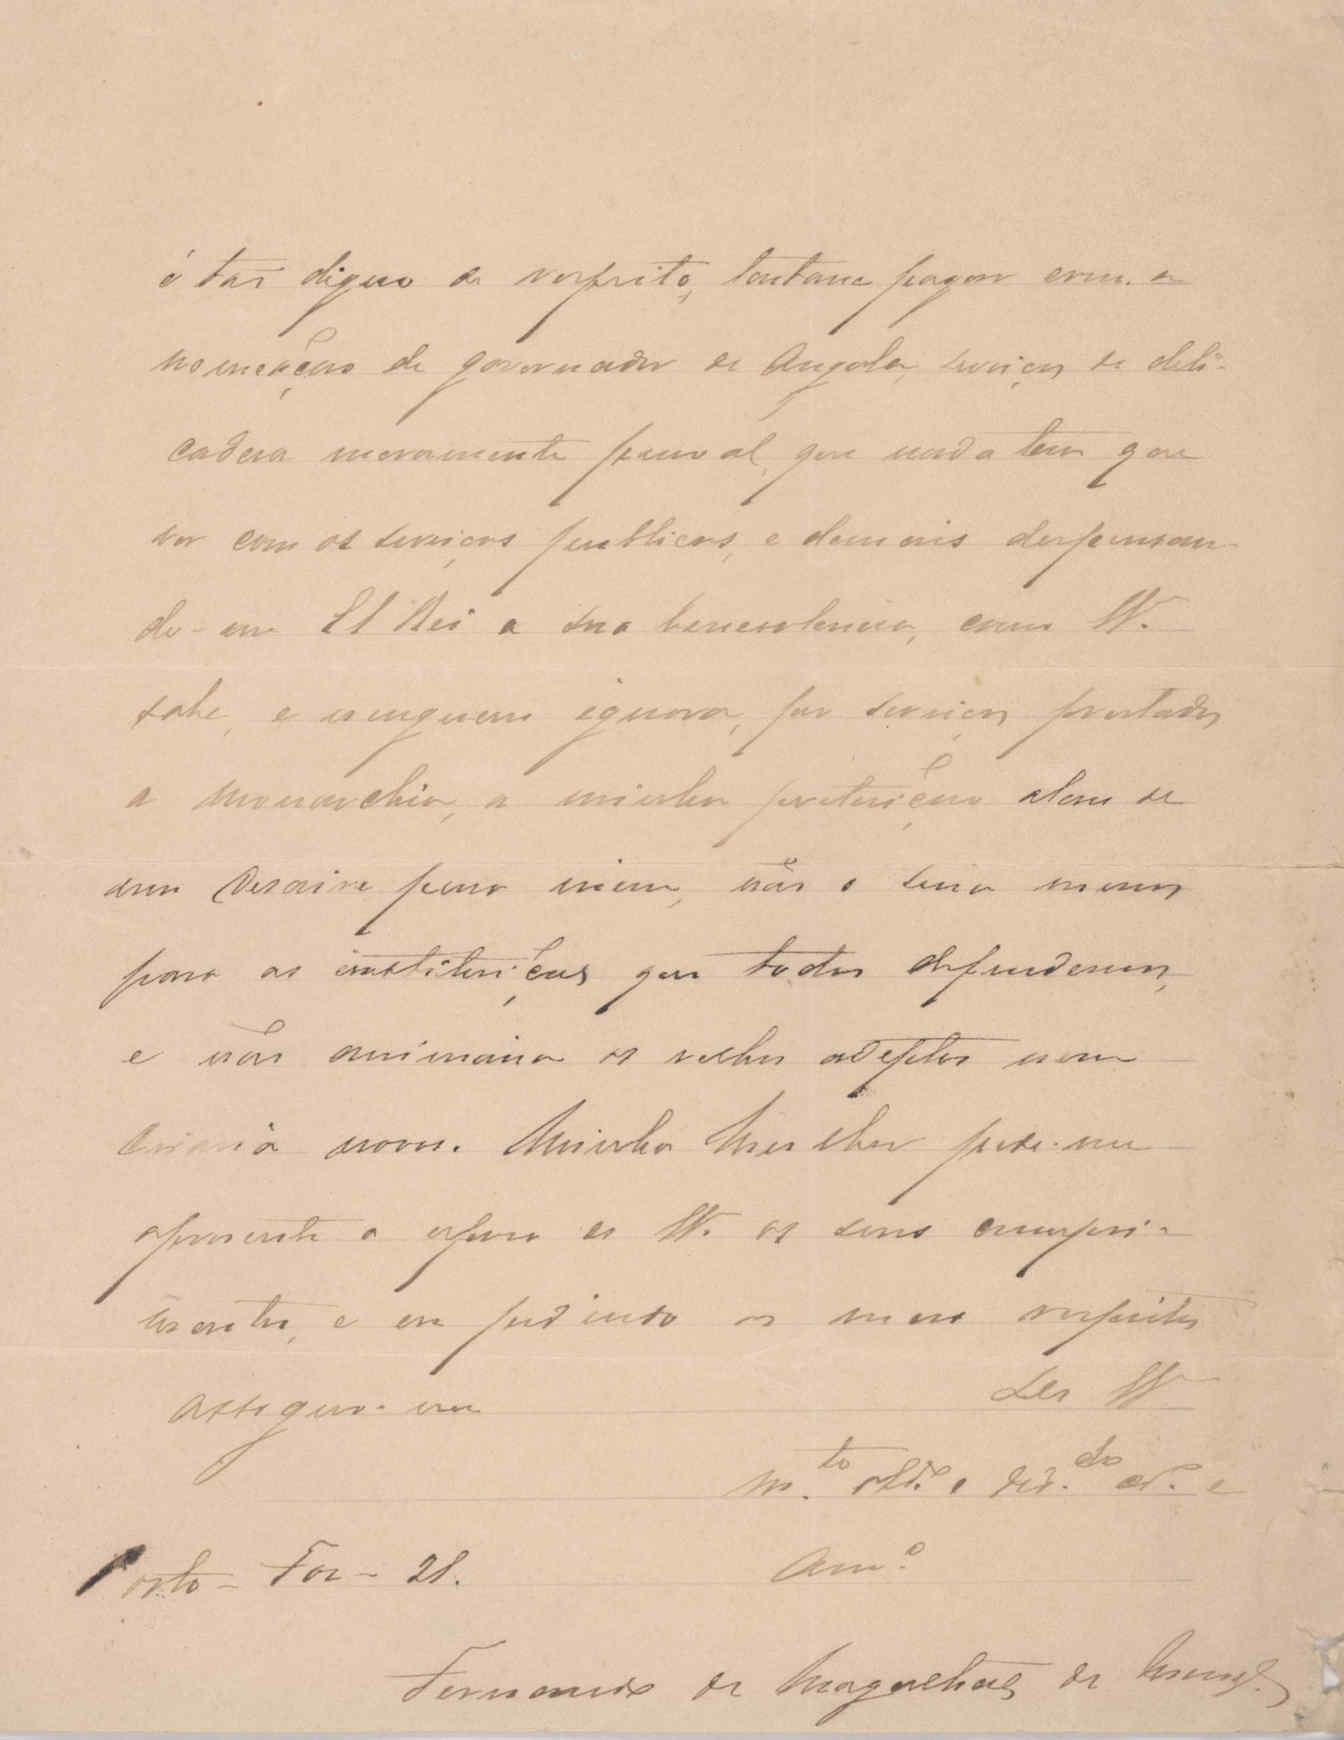 é tão digno de respeito, tentam pagar com a
nomeação de governador de Angola, serviços de deli-
cadesa meramente pessoal, que nada tem que
ver com os serviços publicos, e demais dispensan-
do-me El Rei a sua benevolencia, como V.
sabe, e ninguem ignora, por serviços prestados
a monarchia, a minha preterição alem de
um desaire para mim, não o seria menos
para as instituições que todos defendemos,
e não animaria os velhos adeptos nem
criaria novos. Minha Mulher pede-me
apresente a esposa de V. os seus cumpri-
mentos, e eu pedindo os meus respeitos
assigno-me De V.
m.to obd.o e ded.do cr.o e
Porto - Foz - 21. Am.o
Fernando de Magalhães de Menezes